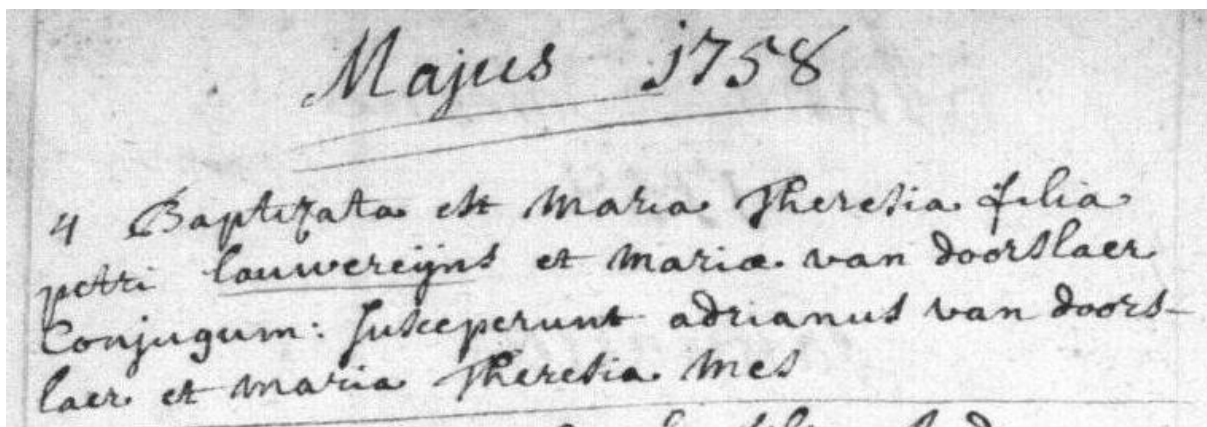 Majus 1758
4 Baptizata est maria Theresia filia
petri lauwereijns et mariæ van doorslaer
Conjugum: Susceperunt adrianus van doors-
laer et maria Theresia mes